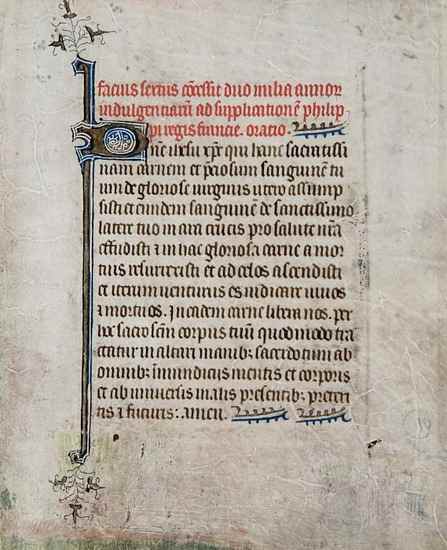 facius sextus cōcessit duo milia annor
indulgentiarū ad supplicationē philip-
pi regis francie. oratio.
Dñe ihesu xp̄e qui hanc sacratissi
mam carnem et p̄ciosum sanguinē tu
um de gloriose virginis utero assump
sisti et eundem sanguinē de sanctissimo
latere tuo in ara crucis pro salute nr̄a
effudisti ⁊ in hac gloriosa carne a mor
tuis resurrexisti et ad celos ascendisti
et iterum venturus es iudicare viuos
⁊ mortuos. in eadem carne libera nos. per
hoc sacro scm̄ corpus tuū quod modo tra
ctatur in altari manibꝫ sacerdotum ab
omnibꝫ inmundiciis mentis et corporis
et ab uniuersis malis presentibꝫ preteri
tis ⁊ futuris. amen.